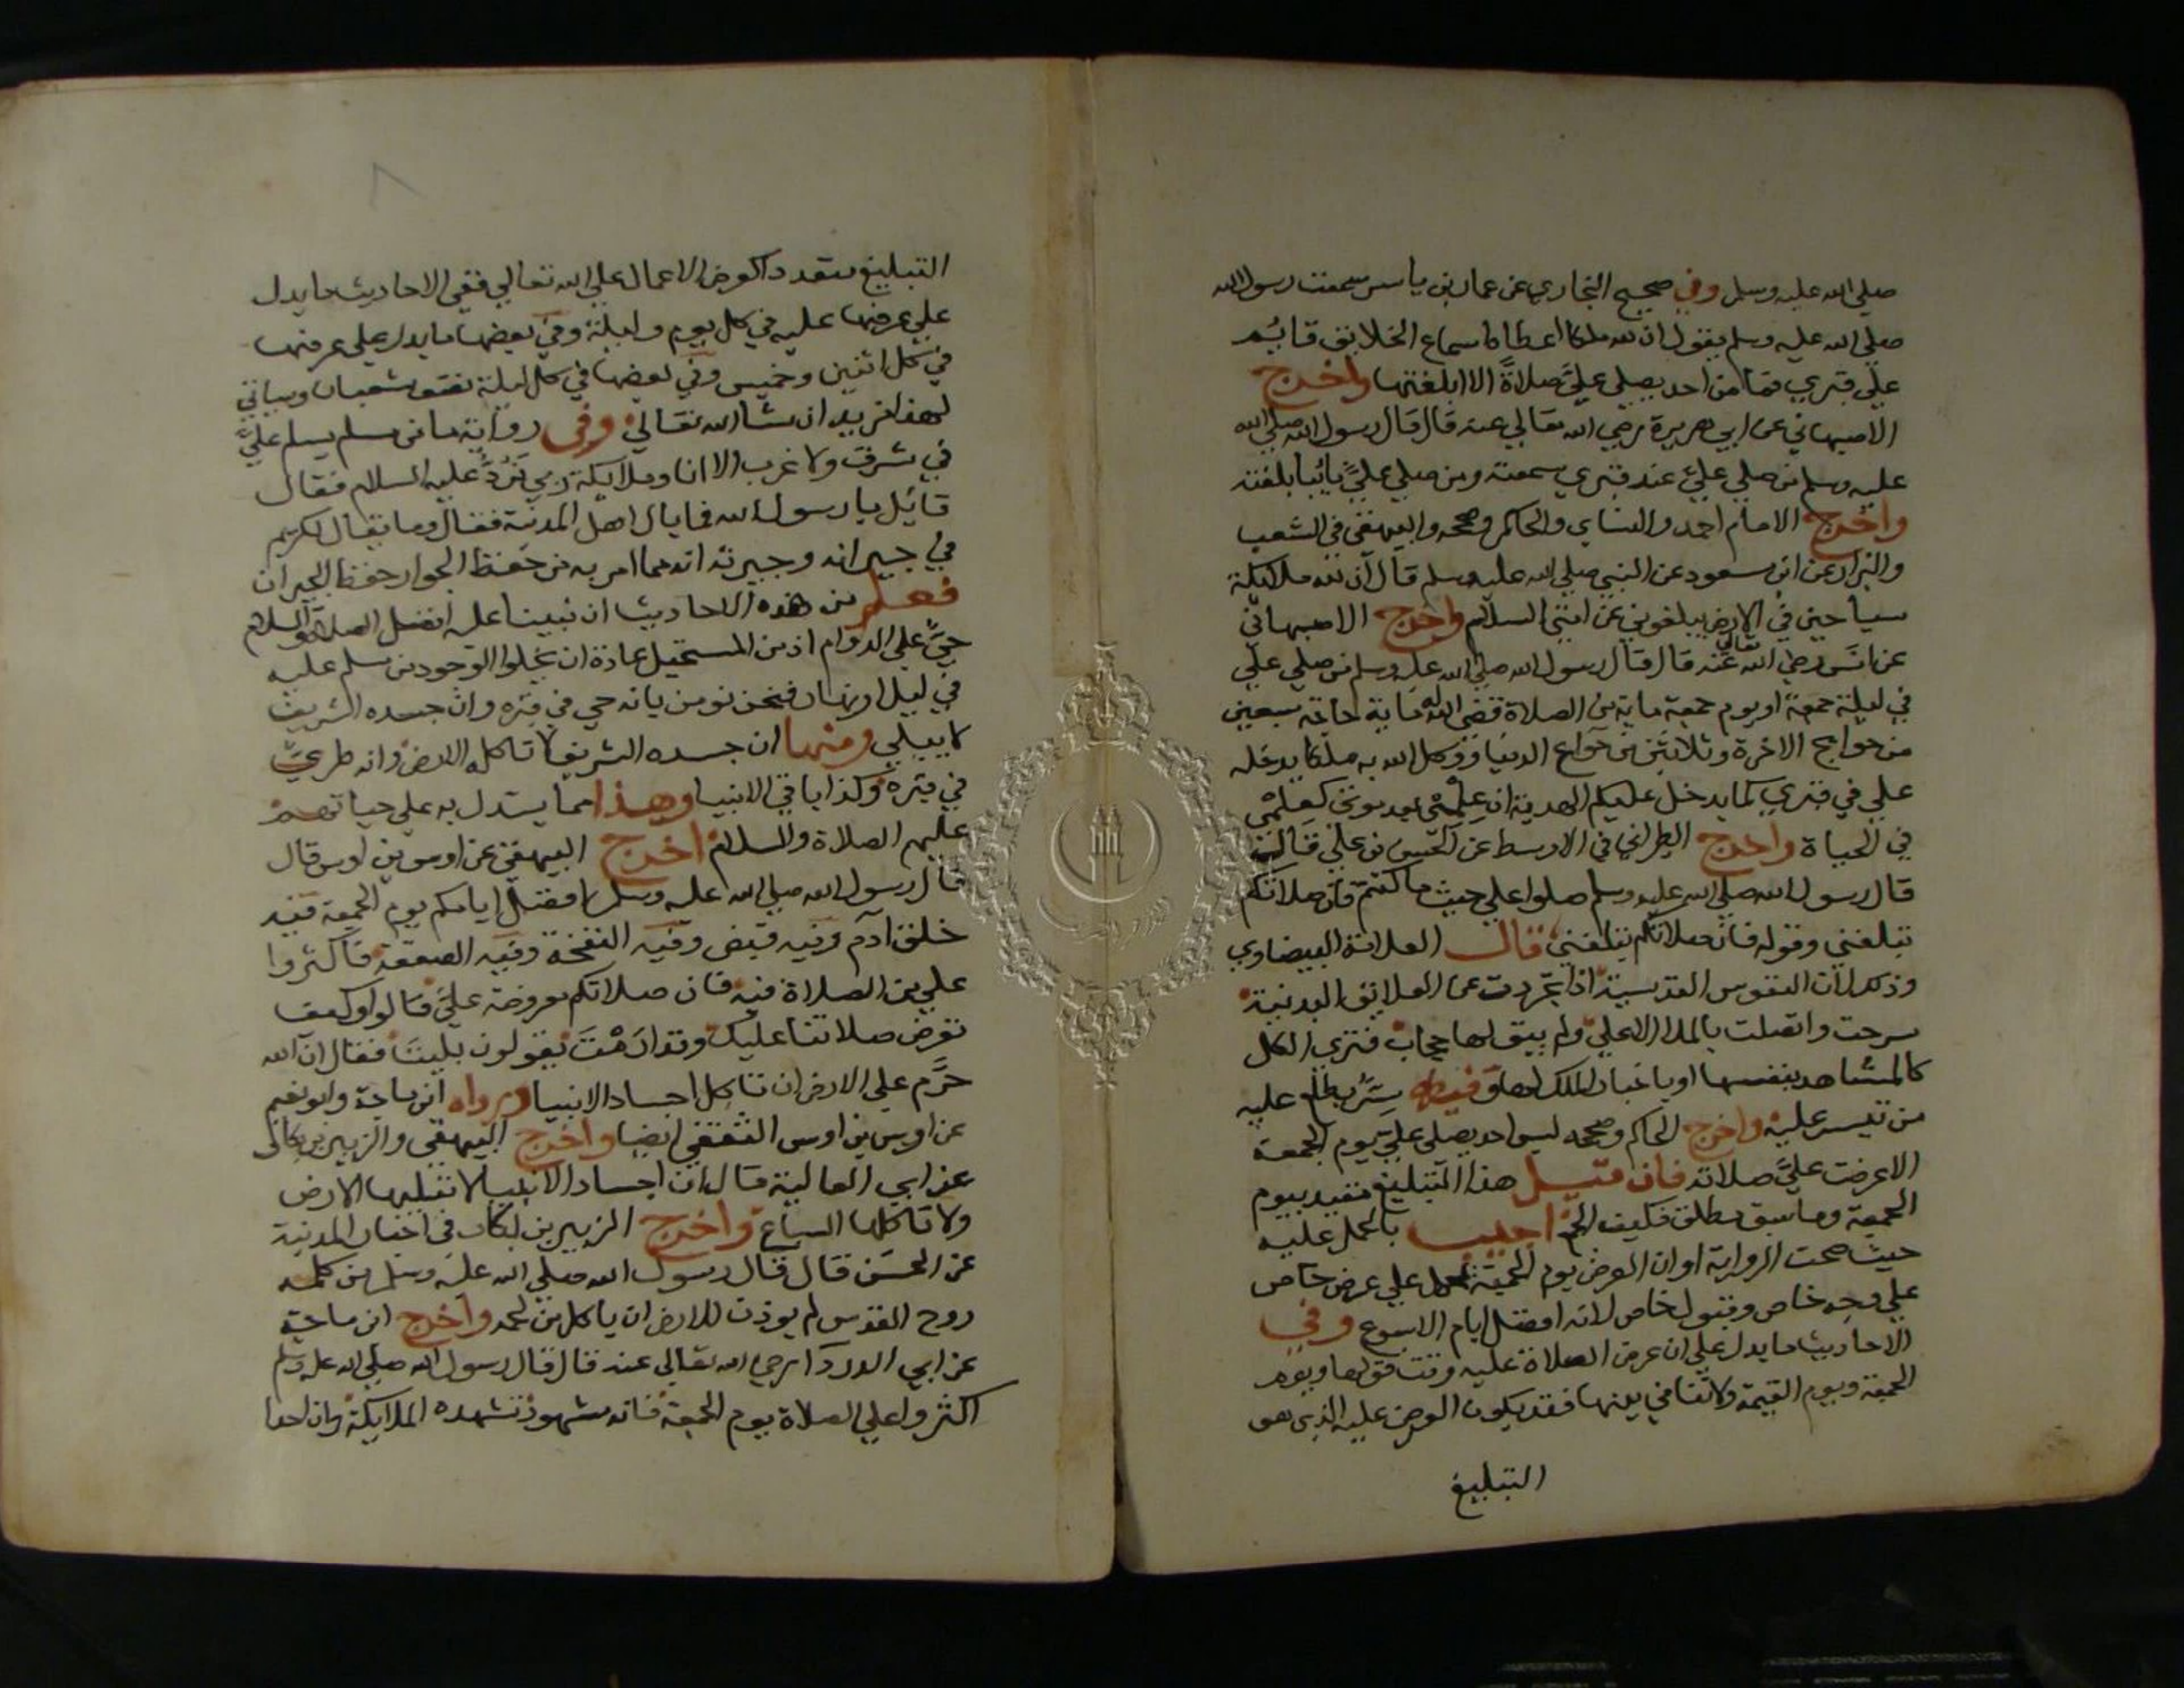 صلي الله عليه وسلم وفي صحيح البخاري عن عمار بن ياسر سمعت رسول الله
صلي الله عليه وسلم يقول ان لله ملكا اعطاه اسماع الخلايق قايم
علي قبري فما من احد يصلي عليَّ صلاةً الا ابلغتها واخرج
الاصبهاني عن ابي هريرة رضي الله تعالي عنه قال قال رسول الله صلي الله
عليه وسلم من صلي عليَّ عند قبري سمعته ومن صلي عليَّ نائبا بلغته
واخرج الامام احمد والنساي والحاكم وصححه والبيهقي في الشعب
والبزار عن ابن مسعود عن النبي صلي الله عليه وسلم قال ان لله ملايكة
سياحين في الارض يبلغوني عن امتي السلام واخرج الاصبهاني
عن انس رضي الله تعالي عنه قال قال رسول الله صلي الله عليه وسلم من صلي علي
في ليلة جمعة او يوم جمعة ماية من الصلاة قضي الله له ماية حاجة سبعين
من حوايج الاخرة وثلاثين من حوايج الدنيا ووكل الله به ملكا يدخله
علي في قبري كما يدخل عليكم الهدية ان عِلْمي بعد موتي كعِلْمي
في الحياة واخرج الطبراني في الاوسط عن الحسن بن علي قال
قال رسول الله صلي الله عليه وسلم صلوا علي حيث ما كنتم فان صلاتكم
تبلغني وقوله فان صلاتكم تبلغني قال العلامة البيضاوي
وذلك لان النفوس القدسية اذا تجردت عن العلايق البدنية
سرحت واتصلت بالملا الاعلي ولم يبق لها حجاب فتري الكل
كالمشاهد بنفسها او باخبار الملك لها وفيه سِرٌّ يطلع عليه
من تيسر عليه واخرج الحاكم وصححه ليس احد يصلي علي يوم الجمعة
الا عرضت عليَّ صلاته فان قيل هذا التبليغ مقيد بيوم
الجمعة وما سبق مطلق فكيف الجمع اجيب بالحمل عليه
حيث صحت الرواية او ان العرض يوم الجمعة يحمل علي عرض خاص
علي وجه خاص وقبول خاص لانه افضل ايام الاسبوع وفي
الاحاديث ما يدل علي ان عرض الصلاة عليه وقت قولها ويوم
الجمعة ويوم القيمة ولا تنافي بينها فقد يكون العرض عليه الذي هو
التبليغ
التبليغ متعدد كعرض الاعمال علي الله تعالي ففي الاحاديث ما يدل
علي عرضها عليه في كل يوم وليلة وفي بعضها ما يدل علي عرضها
في كل اثنين وخميس وفي بعضها في كل ليلة نصف شعبان وسياتي
لهذا مزيد ان شا الله تعالي وفي رواية ما من مسلم يسلم عليَّ
في شرق ولا غرب الا انا وملايكة ربي نَرُدُّ عليه السلام فقال
قايل يا رسول الله فما بال اهل المدينة فقال وما يقال لكريم
في جيرانه وجيرته انه مما امر به من حفظ الجوار حفظ الجيران
فعلم من هذه الاحاديث ان نبينا عليه افضل الصلاة والسلام
حيٌّ علي الدوام اذ من المستحيل عادة ان يخلوا الوجود من مسلم عليه
في ليل او نهار فنحن نومن بانه حي في قبره وان جسده الشريف
لا يبلي ومنها ان جسده الشريف لا تاكله الارض وانه طريٌّ
في قبره وكذا باقي الانبيا وهذا مما يستدل به علي حياتهم
عليهم الصلاة والسلام اخرج البيهقي عن اوس بن اوس قال
قال رسول الله صلي الله عليه وسلم افضل ايامكم يوم الجمعة فيه
خلق آدم وفيه قبض وفيه النفخة وفيه الصعقة فاكثروا
علي من الصلاة فيه فان صلاتكم معروضة عليَّ قالوا وكيف
تعرض صلاتنا عليك وقد ارَمْتَ يقولون بليتَ فقال ان الله
حرَّم علي الارض ان تاكل اجساد الانبيا ورواه ابن ماجة وابو نعيم
عن اوس بن اوس الثقفي ايضا واخرج البيهقي والزبير بن بكار
عن ابي العالية قال ان اجساد الانبيا لا تبليها الارض
ولا تاكلها السباع واخرج الزبير بن بكار في اخبار المدينة
عن الحسن قال قال رسول الله صلي الله عليه وسلم من كلمه
روح القدس لم يوذن للارض ان ياكل من لحمه واخرج ابن ماجة
عن ابي الدردا رضي الله تعالي عنه قال قال رسول الله صلي الله عليه وسلم
اكثروا علي الصلاة يوم الجمعة فانه مشهود تشهده الملايكة وان احدا